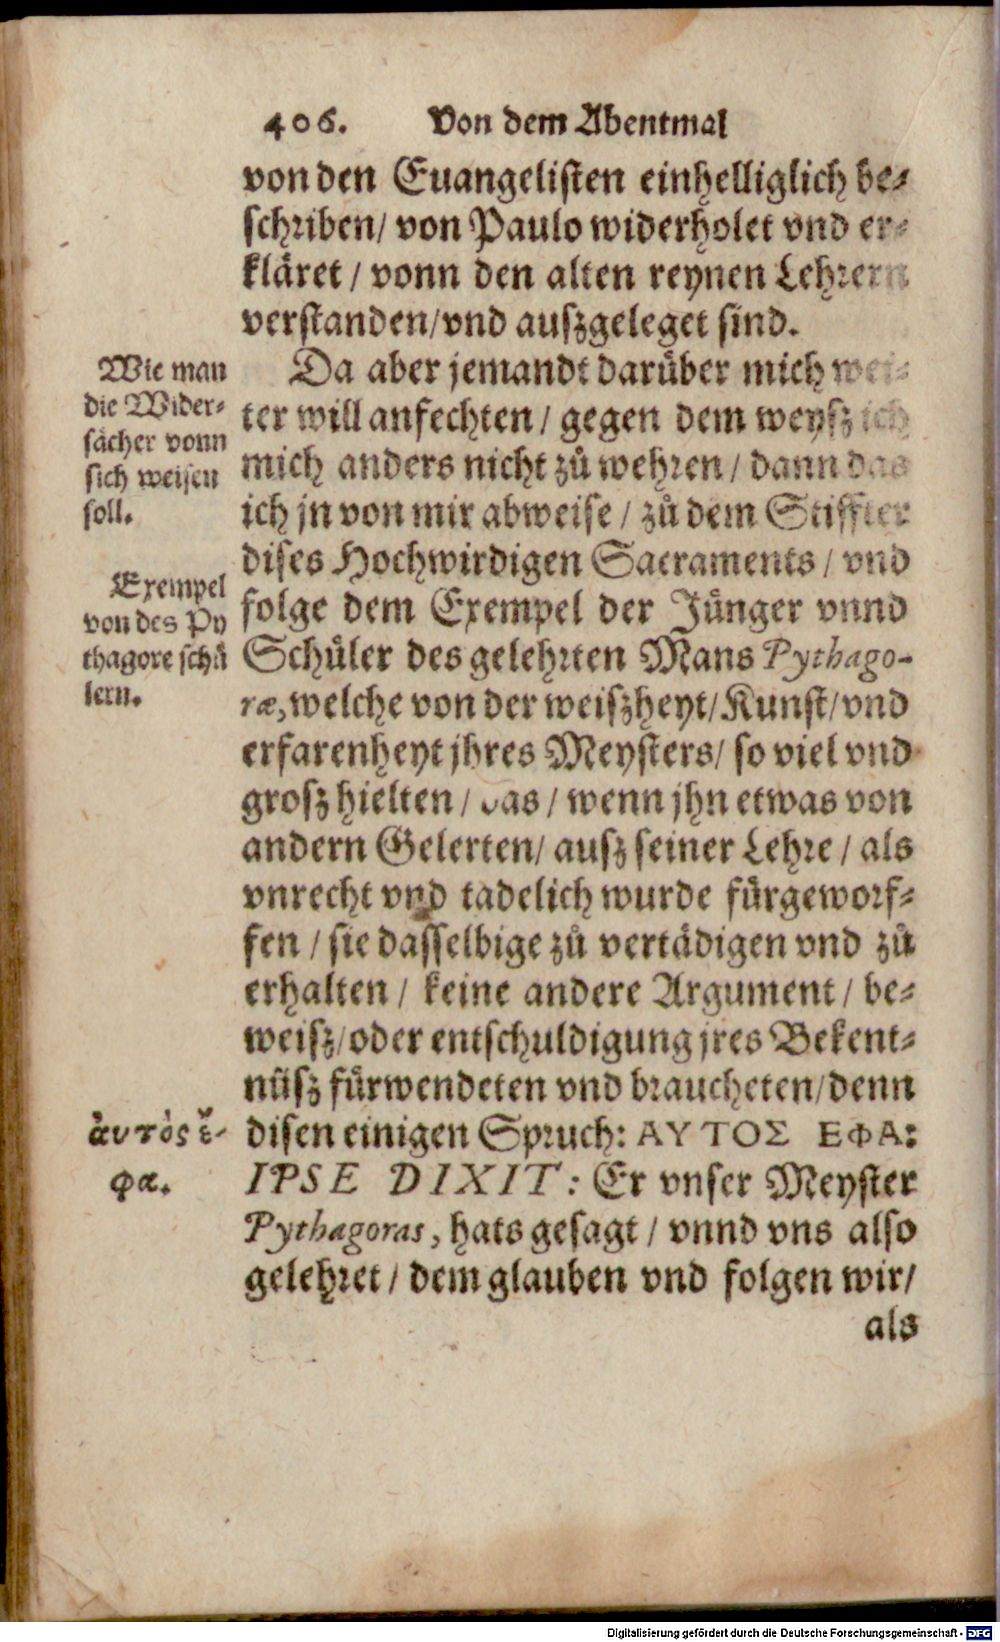 406. Von dem Abentmal
von den Euangelisten einhelliglich be-
schriben/ von Paulo widerholet vnd er-
kläret / vonn den alten reynen Lehrern
verstanden/vnd auszgeleget sind.
Wie man
die Wider-
sächer vonn
sich weisen
soll.
Da aber jemandt darüber mich wei-
ter will anfechten / gegen dem weysz ich
mich anders nicht zů wehren / dann das
ich jn von mir abweise / zů dem Stiffter
dises Hochwirdigen Sacraments / vnd
Exempel
von des Py
thagore schů
lern.
folge dem Exempel der Jünger vnnd
Schüler des gelehrten Mans Pythago-
ræ, welche von der weiszheyt/Kunst/vnd
erfarenheyt jhres Meysters/ so viel vnd
grosz hielten / das / wenn jhn etwas von
andern Gelerten/ ausz seiner Lehre / als
vnrecht vnd tadelich wurde fürgeworf-
fen / sie dasselbige zů vertädigen vnd zů
erhalten / keine andere Argument / be-
weisz/oder entschuldigung jres Bekent-
nüsz fürwendeten vnd braucheten/denn
ἀυτὸς ἔ-
φα.
disen einigen Spruch: ΑΥΤΟΣ ΕΦΑ:
IPSE DIXIT: Er vnser Meyster
Pythagoras, hats gesagt / vnnd vns also
gelehret / dem glauben vnd folgen wir/
als
Digitalisierung gefördert durch die Deutsche Forschungsgemeinschaft - DFG